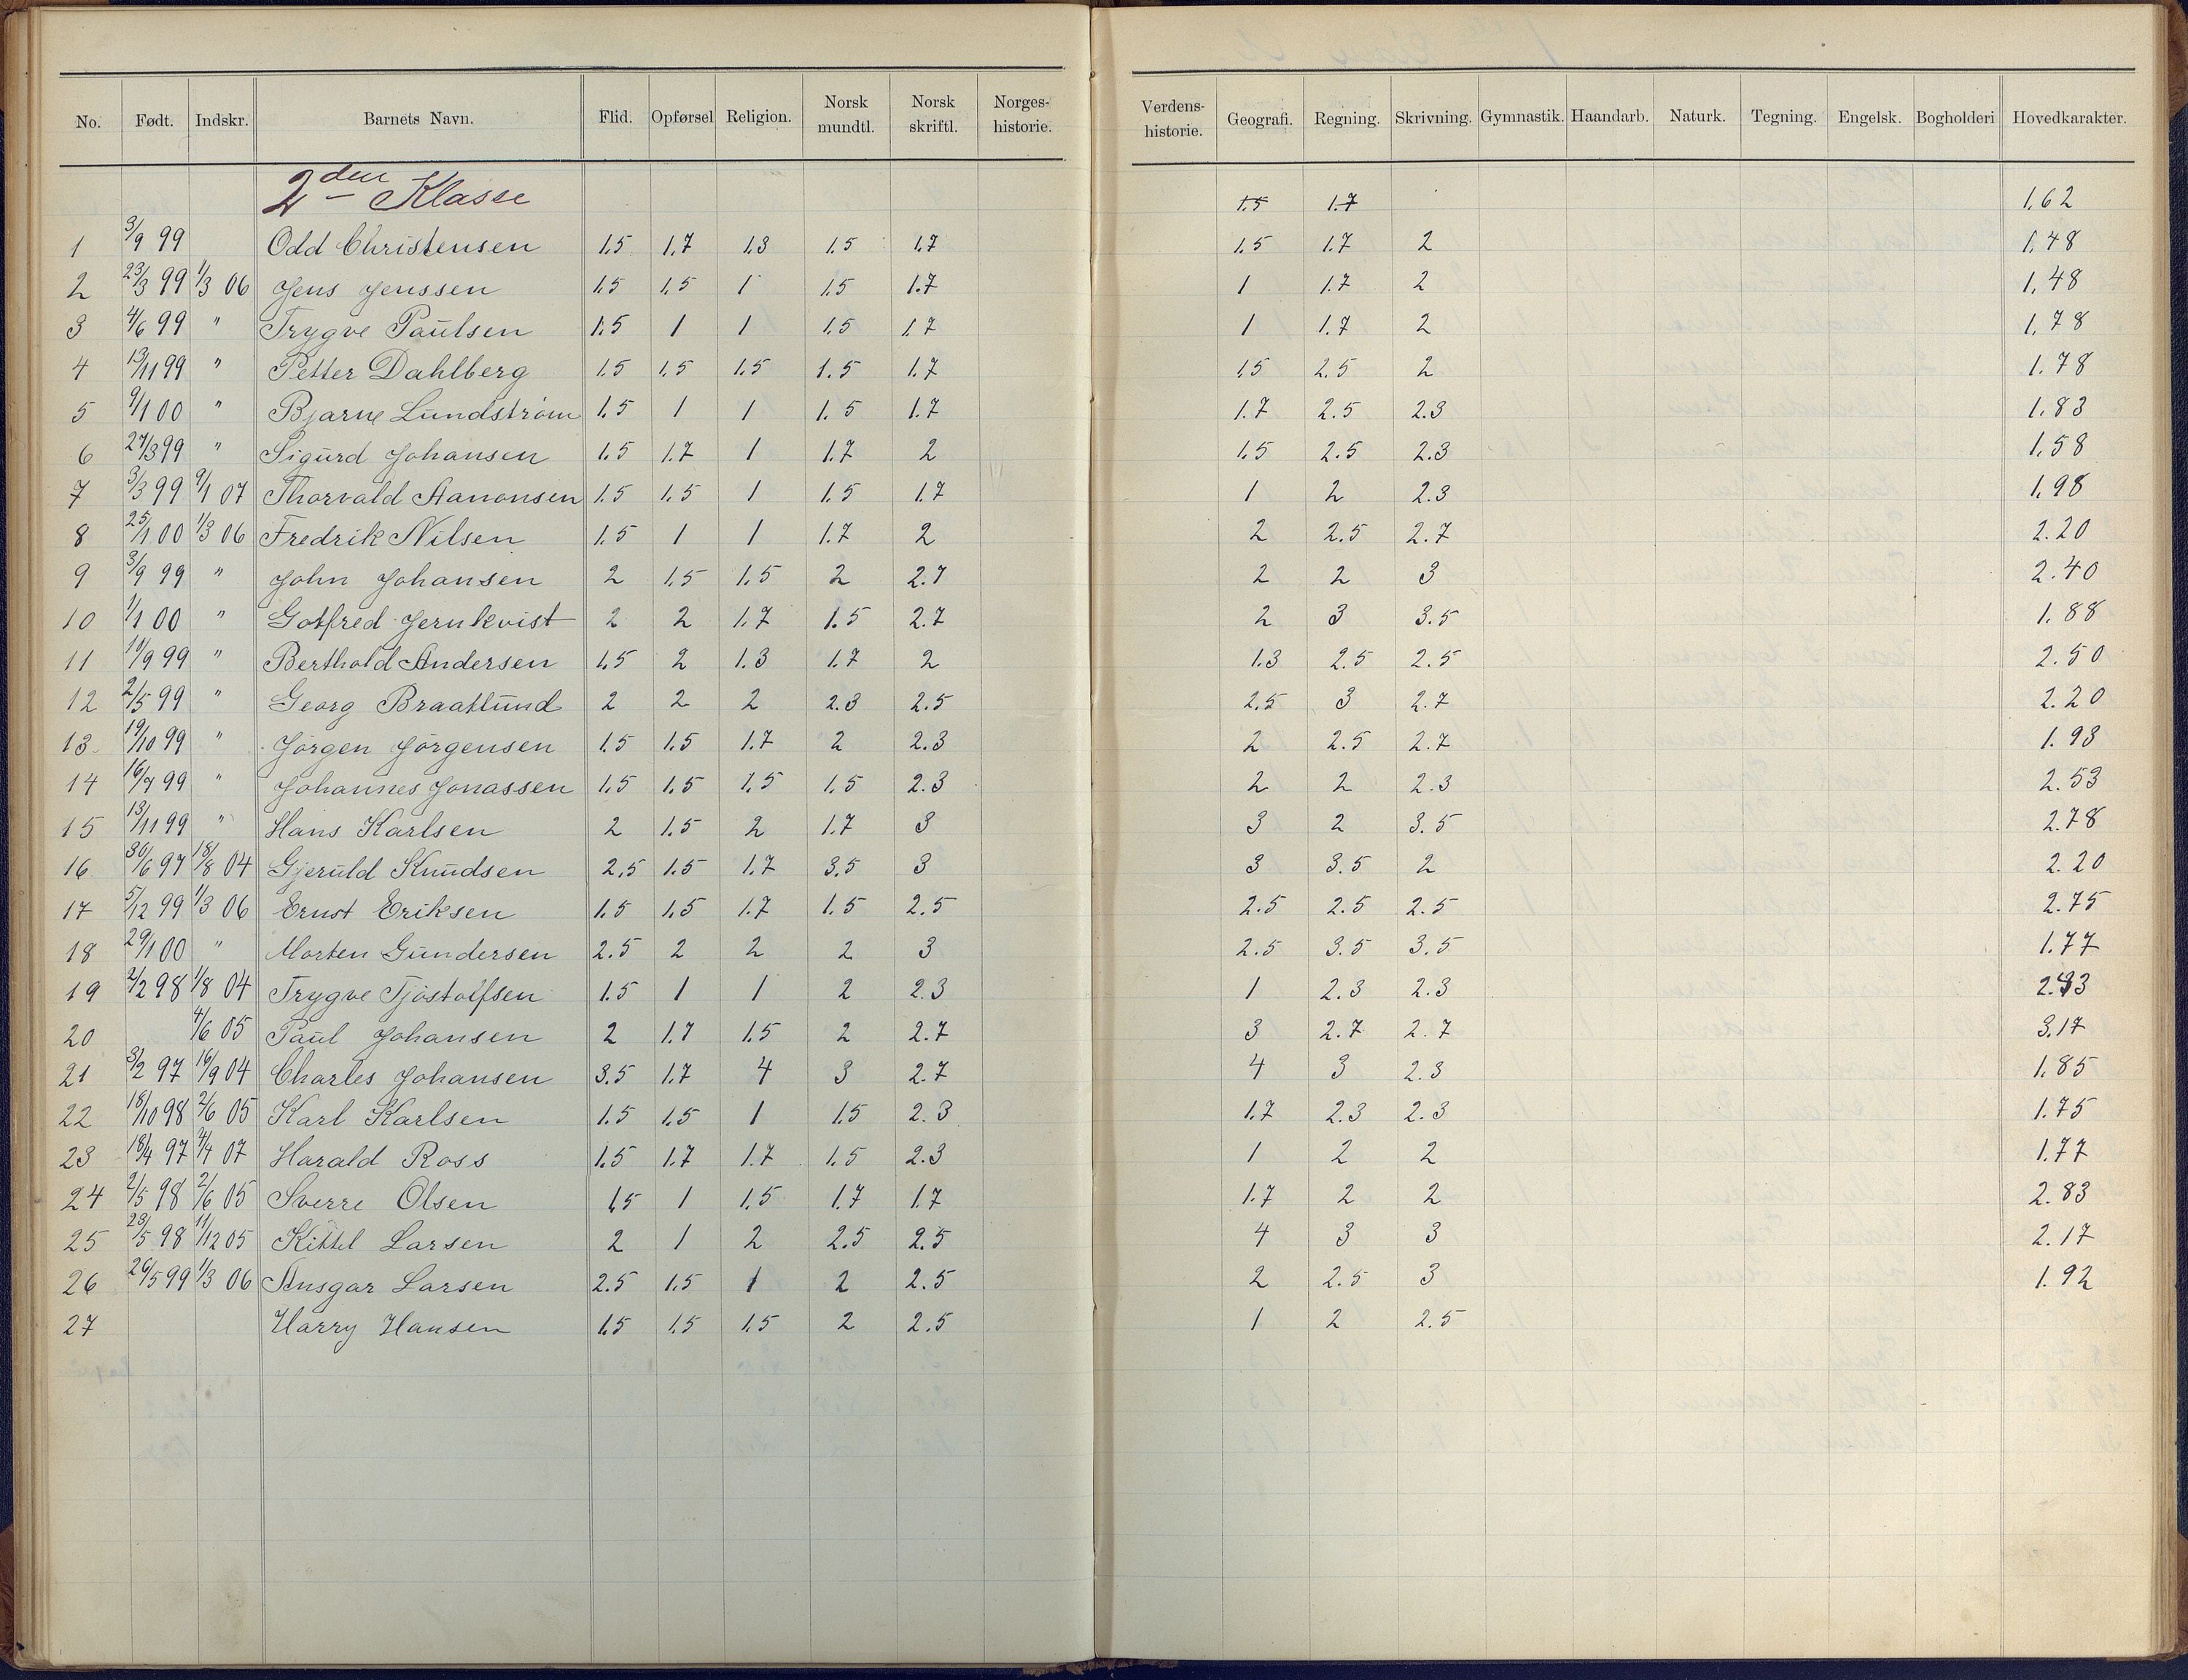 No. Født. Indskr. Barnets Navn. Flid. Opførsel Religion. Norsk mundtl. Norsk skriftl. Norges-historie. Verdens-historie. Geografi. Regning. Skrivning. Gymnastik. Haandarb. Naturk. Tegning. Engelsk. Bogholderi Hovedkarakter.
2den Klasse 1.5 1.7 1,62
1 3/9 99 Odd Christensen 1.5 1,7 1.3 1.5 1.7 1.5 1.7 2 1,48
2 23/3 99 1/3 06 Jens Jenssen 1.5 1.5 1 1.5 1.7 1 1.7 2 1,48
3 4/6 99 " Trygve Paulsen 1.5 1 1 1.5 1.7 1 1.7 2 1,78
4 13/11 99 " Petter Dahlberg 1.5 1.5 1.5 1.5 1.7 1.5 2.5 2 1.78
5 9/1 00 " Bjarne Lundstrøm 1.5 1 1 1.5 1.7 1.7 2.5 2.3 1.83
6 27/3 99 " Sigurd Johansen 1.5 1.7 1 1.7 2 1.5 2.5 2.3 1.58
7 3/3 99 9/1 07 Thorvald Aanonsen 1.5 1.5 1 1.5 1.7 1 2 2.3 1.98
8 25/1 00 1/3 06 Fredrik Nilsen 1.5 1 1 1.7 2 2 2.5 2.7 2.20
9 3/9 99 " John Johansen 2 1.5 1.5 2 2.7 2 2 3 2.40
10 1/1 00 " Gotfred Jernkvist 2 2 1.7 1.5 2.7 2 3 3.5 1.88
11 10/9 99 " Berthold Andersen 1.5 2 1.3 1.7 2 1.3 2.5 2.5 2.50
12 2/5 99 " Georg Braatlund 2 2 2 2.3 2.5 2.5 3 2.7 2.20
13 19/10 99 " Jørgen Jørgensen 1.5 1.5 1.7 2 2.3 2 2.5 2.7 1.93
14 16/7 99 " Johannes Jonassen 1.5 1.5 1.5 1.5 2.3 2 2 2.3 2.53
15 13/11 99 " Hans Karlsen 2 1.5 2 1.7 3 3 2 3.5 2.78
16 30/6 97 18/8 04 Gjeruld Knudsen 2.5 1.5 1.7 3.5 3 3 3.5 2 2.20
17 5/12 99 1/3 06 Ernst Eriksen 1.5 1.5 1.7 1.5 2.5 2.5 2.5 2.5 2.75
18 29/1 00 " Morten Gundersen 2.5 2 2 2 3 2.5 3.5 3.5 1.77
19 2/2 98 1/8 04 Trygve Tjøstolfsen 1.5 1 1 2 2.3 1 2.3 2.3 2.43
20 4/6 05 Paul Johansen 2 1.7 1.5 2 2.7 3 2.7 2.7 3.17
21 3/2 97 16/9 04 Charles Johansen 3.5 1.7 4 3 2.7 4 3 2.3 1.85
22 18/10 98 2/6 05 Karl Karlsen 1.5 1.5 1 1.5 2.3 1.7 2.3 2.3 1.75
23 18/4 97 4/4 07 Harald Ross 1.5 1.7 1.7 1.5 2.3 1 2 2 1.77
24 2/5 98 2/6 05 Sverre Olsen 1.5 1 1.5 1.7 1.7 1.7 2 2 2.83
25 23/5 98 11/12 05 Kittil Larsen 2 1 2 2.5 2.5 4 3 3 2.17
26 26/5 99 1/3 06 Ansgar Larsen 2.5 1.5 1 2 2.5 2 2.5 3 1.92
27 Harry Hansen 1.5 1.5 1.5 2 2.5 1 2 2.5